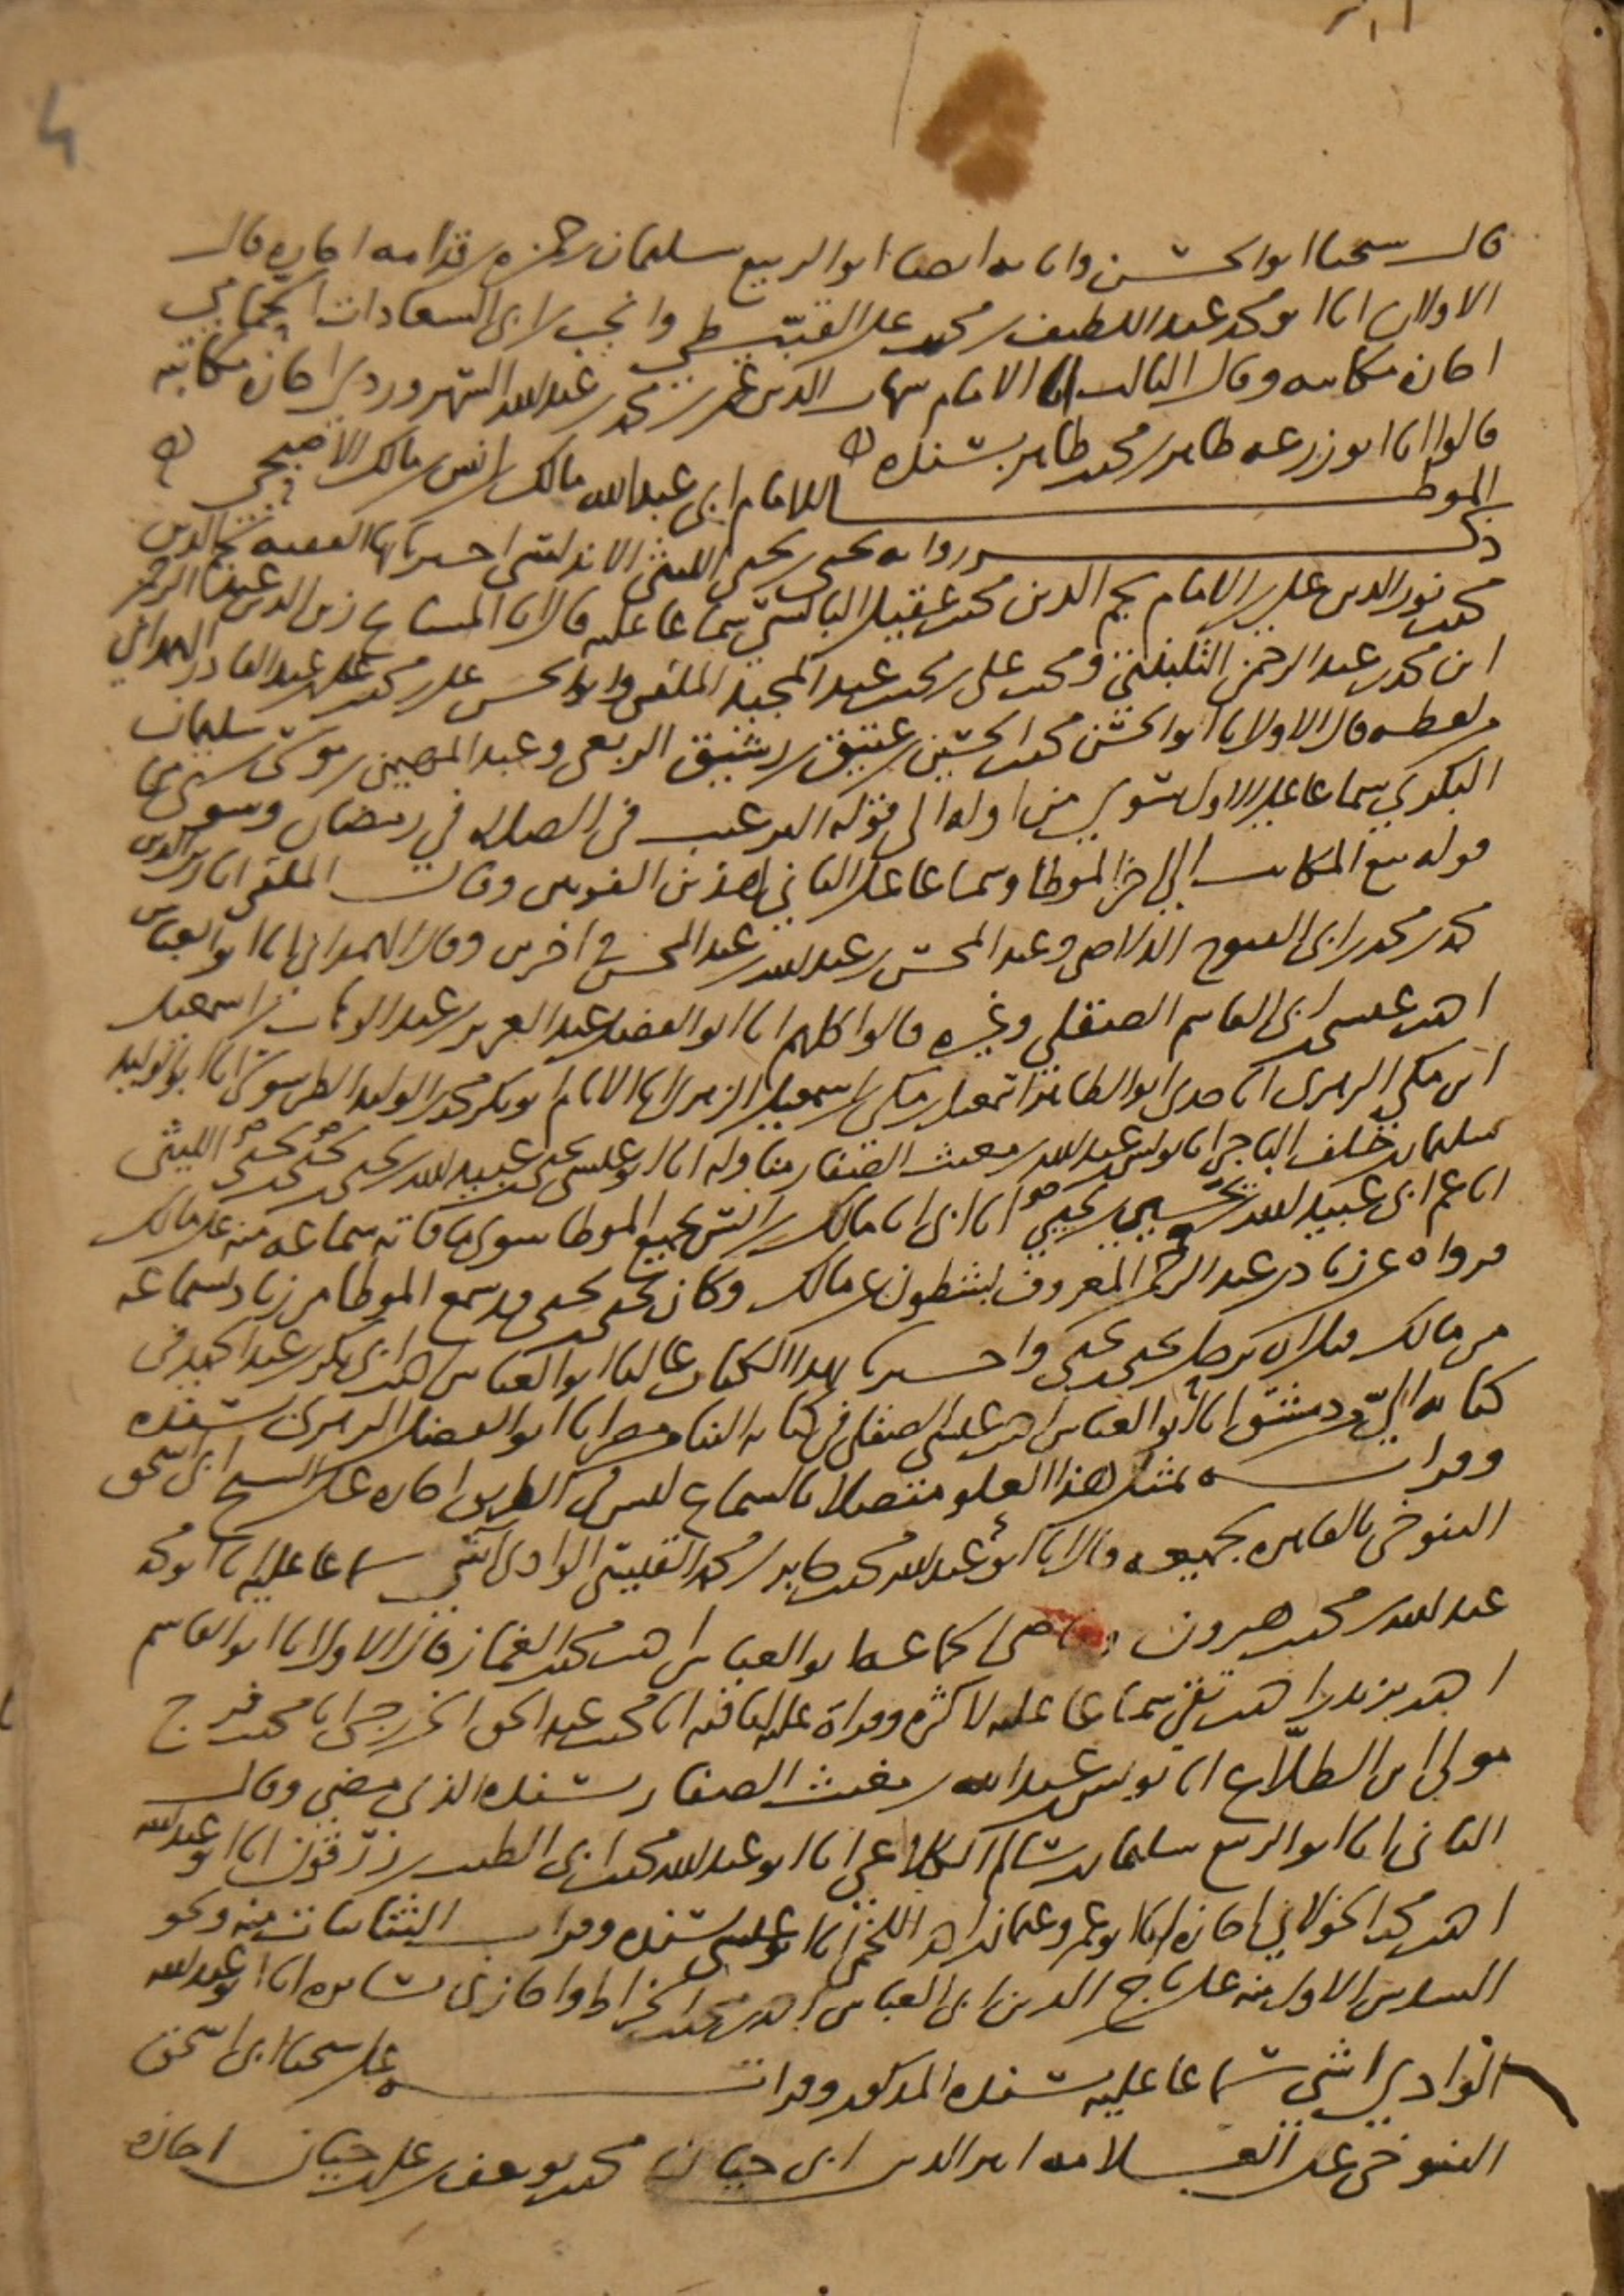 قال شيخنا ابو الحسن وانا به ايضا ابو الربيع سليمان بن حمزة بن قدامه اجازه قال
الاولان انا ابو محمد عبد اللطيف بن محمد بن علي القبيطي وانجب بن ابي السعادات الحمامي
اجازة مكاتبه وقال الثالث انا الامام شهاب الدين عمر بن محمد بن عبد الله السهروردي اجازة مكاتبه
قالوا انا ابو زرعه طاهر بن محمد بن طاهر بسنده
الموطا للامام ابي عبد الله مالك بن انس بن مالك الاصبحي
ذكر روايه يحيى بن يحيى الليثي الاندلسي اخبرنا بها الفقيه نجم الدين
محمد بن نور الدين علي بن الامام نجم الدين محمد بن عقيل البالسي سماعا عليه قال انا المشايخ زين الدين عبد الرحمن
ابن محمد بن عبد الرحمن ومحمد بن علي بن محمد بن عبد المجيد الملقن وابو الحسن علي بن محمد بن علي بن عبد القادر الهمداني
قال الاول انا ابو الحسن محمد بن الحسين بن عتيق بن رشيق الربعي وعبد المهيمن بن موسى بن سليمان
البكري سماعا على الاول سوى من اوله الى قوله الترغيب في الصلاه في رمضان وسوى من
قوله بيع المكاتب الى اخر الموطا وسماعا على الثاني لهذين الفوتين وقال الملقن انا زين الدين
محمد بن محمد بن ابي الفتوح الدلاصي وعبد المحسن بن عبد الله بن عبد المحسن في اخرين وقال الهمداني انا ابو العباس
احمد بن عيسى بن ابي القاسم الصقلي وغيره قالوا كلهم انا ابو الفضل عبد العزيز بن عبد الوهاب بن اسمعيل
ابن مكي الزهري انا جدي ابو الطاهر اسمعيل بن مكي بن اسمعيل الزهري انا الامام ابو بكر محمد بن الوليد الطرطوشي انا ابو الوليد
سليمان بن خلف الباجي انا يونس بن عبد الله بن مغيث الصفار مناوله انا ابو عيسى يحيى بن عبيد الله بن يحيى بن يحيى الليثي
انا عم ابي عبيد الله بن يحيى بن يحيى انا ابي انا مالك بن انس بجميع الموطا سوى ما فاته سماعه منه على مالك
فرواه عن زياد بن عبد الرحمن المعروف بشطون عن مالك وكان يحيى بن يحيى قد سمع الموطا من زياد بسماعه
من مالك قبل ان يرحل يحيى بن يحيى واخبرنا بهذا الكتاب عاليا ابو العباس احمد بن ابي بكر بن عبد الحميد في
كتابه الي من دمشق انا ابو العباس احمد بن عيسى الصقلي في كتابه الينا من مصر انا ابو الفضل الزهري بسنده
وقراته بمثل هذا العلو متصلا بالسماع ليس في الطريق اجازه على الشيخ ابي اسحق
التنوخي بالقاهره بجميعه قال انا ابو عبد الله محمد بن جابر بن محمد القيسي الوادي آشي سماعا عليه انا ابو محمد
عبد الله بن محمد بن هرون وقاضي الجماعه ابو العباس احمد بن محمد الغماز قال الاول انا ابو القاسم
احمد بن يزيد بن احمد بن بقي سماعا عليه لاكثره وقراة عليه لباقيه انا محمد بن عبد الحق الخزرجي انا محمد بن فرج
مولى ابن الطلاع انا يونس بن عبد الله بن مغيث الصفار بسنده الذي مضى وقال
الثاني انا ابو الربيع سليمان بن سالم الكلاعي انا ابو عبد الله محمد بن ابي الطيب بن زرقون انا ابو عبد الله
احمد بن محمد الخولاني اجازه انا ابو عمرو عثمان بن احمد اللخمي انا ابو عيسى بسنده وقرات الثنائيات منه ونحو
السدس الاول منه على تاج الدين ابي العباس احمد بن محمد الخراط واجازني بسائره انا ابو عبد الله
الوادي اشي سماعا عليه بسنده المذكور وقراته على شيخنا ابي اسحق
التنوخي عن العلامه اثير الدين ابي حيان محمد بن يوسف بن علي بن حيان اجازه